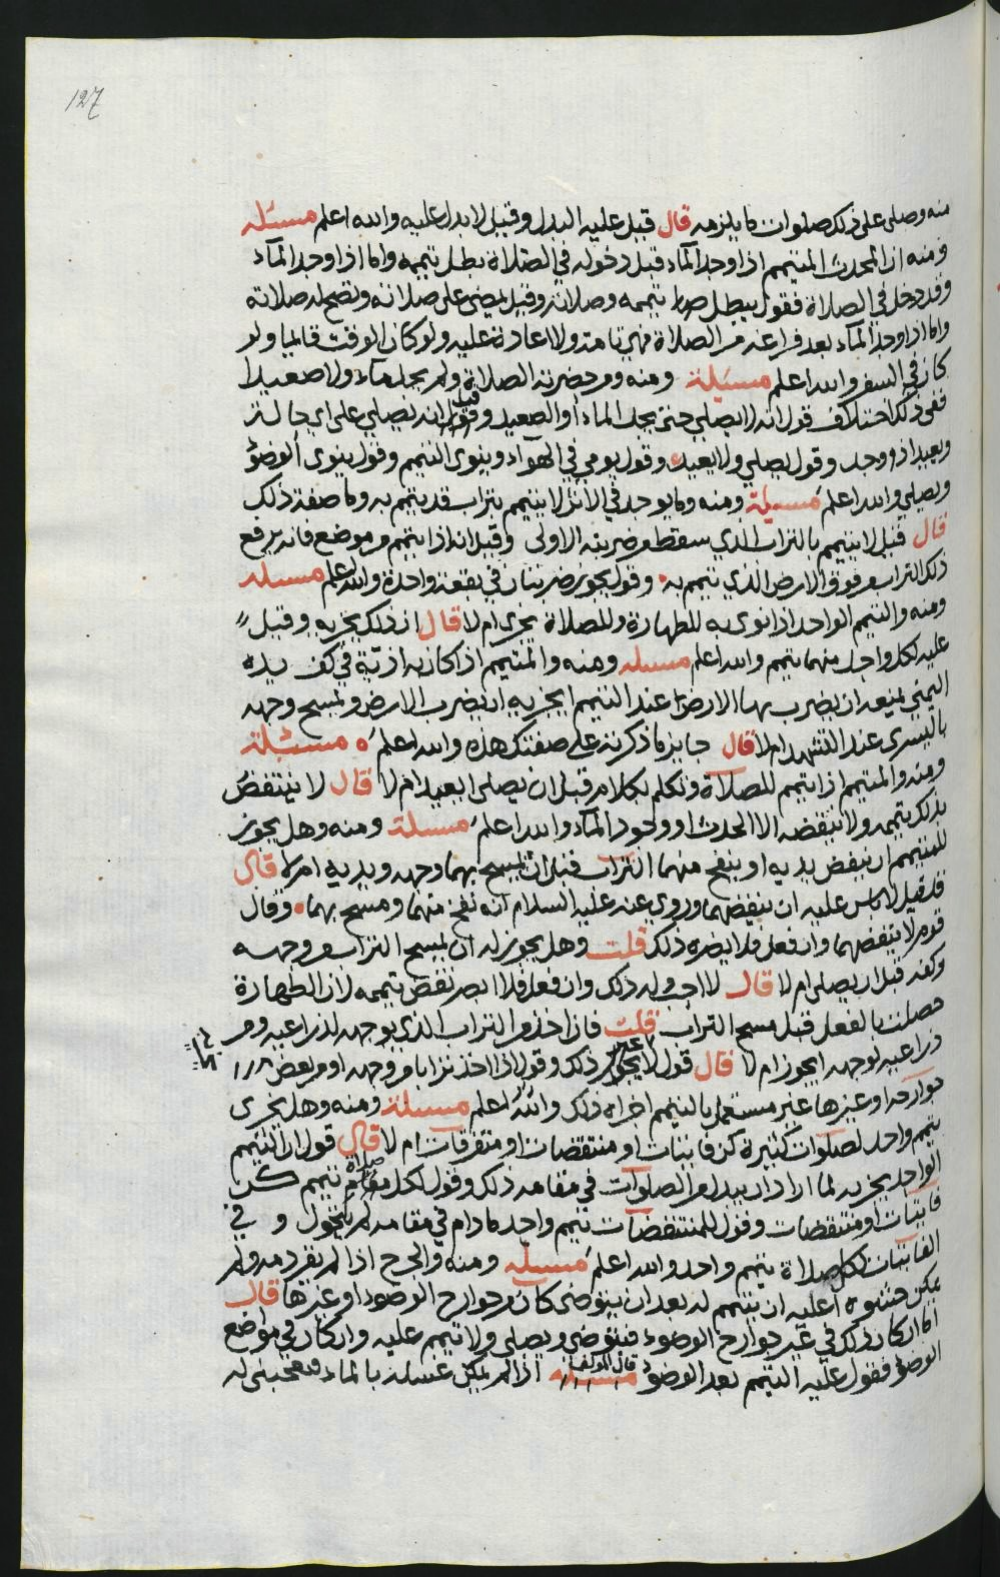 127
منه وصلى على ذلك صلوات ما يلزمه قال قيل عليه البدل وقيل لا بدل عليه والله اعلم مسئله
ومنه ان المحدث المتيمم اذا وجد المآء قبل دخوله في الصلاة بطل تيممه واما اذا وجد المآء
وقد دخل في الصلاة فقول يبطل تيممه وصلاته وقيل يمضي على صلاته وتصح له صلاته
واما اذا وجد المآء بعد فراغه من الصلاة فهي تامة ولا اعادة عليه ولو كان الوقت قائما ولو
كان في السفر والله اعلم مسئلة ومنه ومن حضرته الصلاة ولم يجد مآء ولا صعيدا
ففي ذلك اختلاف قول انه لا يصلي حتى يجد الماء او الصعيد وقول انه يصلي على اي حال
ويعيد اذا وجد وقول يصلي ولا يعيد وقول يومي في الهوآء وينوي التيمم وقول ينوي الوضوء
ويصلي والله اعلم مسيلة ومنه وما يوجد في الاثر لا يتيمم بتراب قد يتمم به وما صفة ذلك
قال قيل لا يتيمم بالتراب الذي سقط من ضربته الاولى وقيل انه اذا تيمم من موضع فانه يرفع
ذلك التراب من فوق الارض الذي تيمم به وقول يجوز ضربتان في بقعة واحدة والله اعلم مسئله
ومنه والتيمم الواحد اذا نوى به للطهارة وللصلاة يجزي ام لا قال ان ذلك يجزيه وقيل
عليه لكل واحد منهما تيمم والله اعلم مسئله ومنه والمتيمم اذا كان به اذية في كف يده
اليمنى يمنعه ان يضرب بها الارض عند التيمم ايجزيه ان يضرب الارض ويمسح وجهه
باليسرى عند التشهد ام لا قال جايز ما ذكرته على صفتك هذه والله اعلم مسئلة
ومنه والمتيمم اذا تيمم للصلاة وتكلم بكلام قبل ان يصلي ايعيد ام لا قال لا ينتقض
بذلك تيممه ولا ينقضه الا الحدث او وجود المآء والله اعلم مسئلة ومنه وهل يجوز
للمتيمم ان ينفض يديه او ينفخ منهما التراب قبل ان يمسح بهما وجهه ويديه ام لا قال
قد قيل لا باس عليه ان ينفضهما وروي عنه عليه السلام انه نفخ منهما ومسح بهما وقال
قوم لا ينفضهما وان فعل فلا يضره ذلك قلت وهل يجوز له ان يمسح التراب من وجهه
وكفه قبل ان يصلي ام لا قال لا احب له ذلك وان فعل فلا ابصر نقض تيممه لان الطهارة
حصلت بالفعل قبل مسح التراب قلت فان اخذ من التراب الذي بوجهه لذراعيه ومن
ذراعيه لوجهه ايجوز ام لا قال قول لا يجوز ذلك وقول اذا اخذ ترابا من وجهه او من بعض
جوارحه او غيرها غير مستعمل بالتيمم اجزاه ذلك والله اعلم مسئلة ومنه وهل يجزي
تيمم واحد لصلوات كثيرة كن فائتات او منتقضات او متفرقات ام لا قال قول ان التيمم
الواحد يجزيه لما اراد من الصلوات في مقامه ذلك وقول لكل صلاة تيمم كن
فائتات او منتقضات وقول للمنتقضات تيمم واحد ما دام في مقامه لم يتحول وفي
الفائتات لكل صلاة تيمم واحد والله اعلم مسئله ومنه والجرح اذا لم يفر دمه ولم
يمكن حشوه أعليه ان يتيمم له بعد ان يتوضى كان من جوارح الوضوء او غيرها قال
اما ان كان ذلك في غير جوارح الوضوء فيتوضى ويصلي ولا تيمم عليه وان كان في مواضع
الوضوء فقول عليه التيمم بعد الوضوء مسئله قال المؤلف اذا لم يمكن غسله بالماء